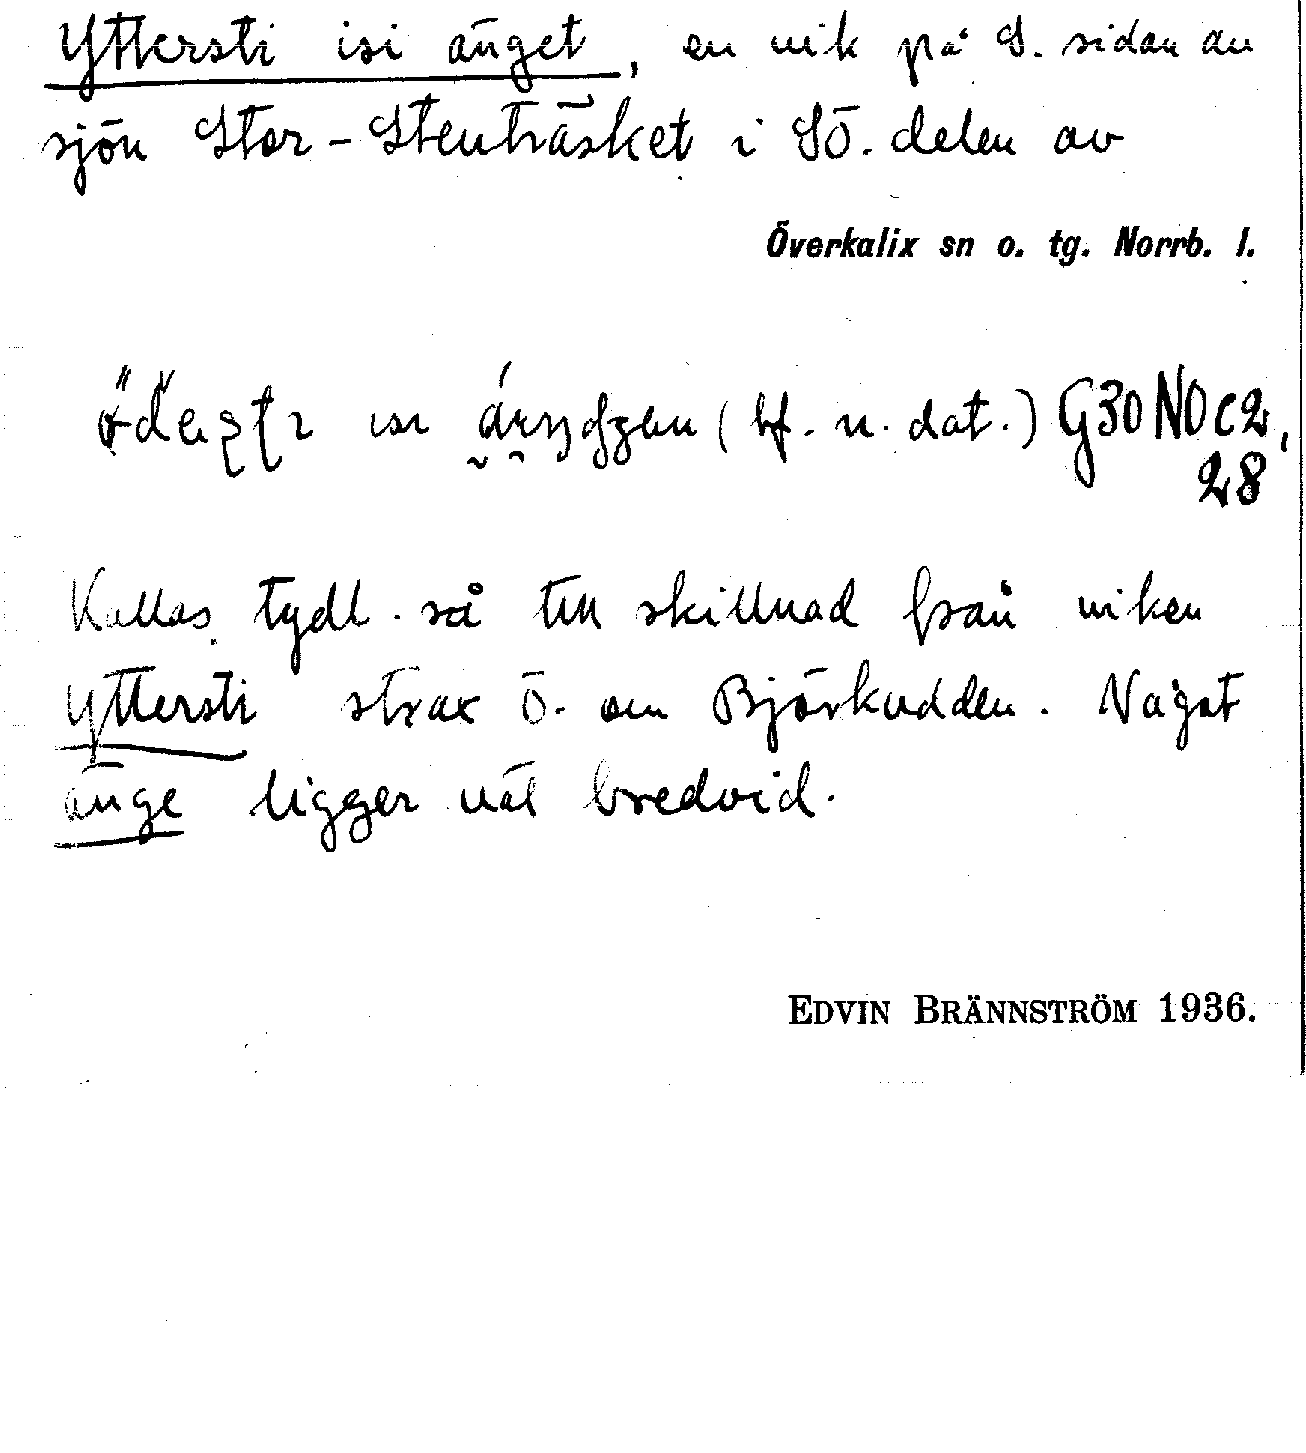 Yttersti isi änget, en vik på S. sidan av
sjön Stor-Stenträsket i SÖ. delen av
Överkalix sn o. tg. Norrb. l.
isi (bf. n. dat.) G30 NO c 2,
28
Kallas tydl. så till skillnad från viken
Yttersti strax Ö. om Björkudden. Något
änge ligger väl bredvid.
EDVIN BRÄNNSTRÖM 1936.